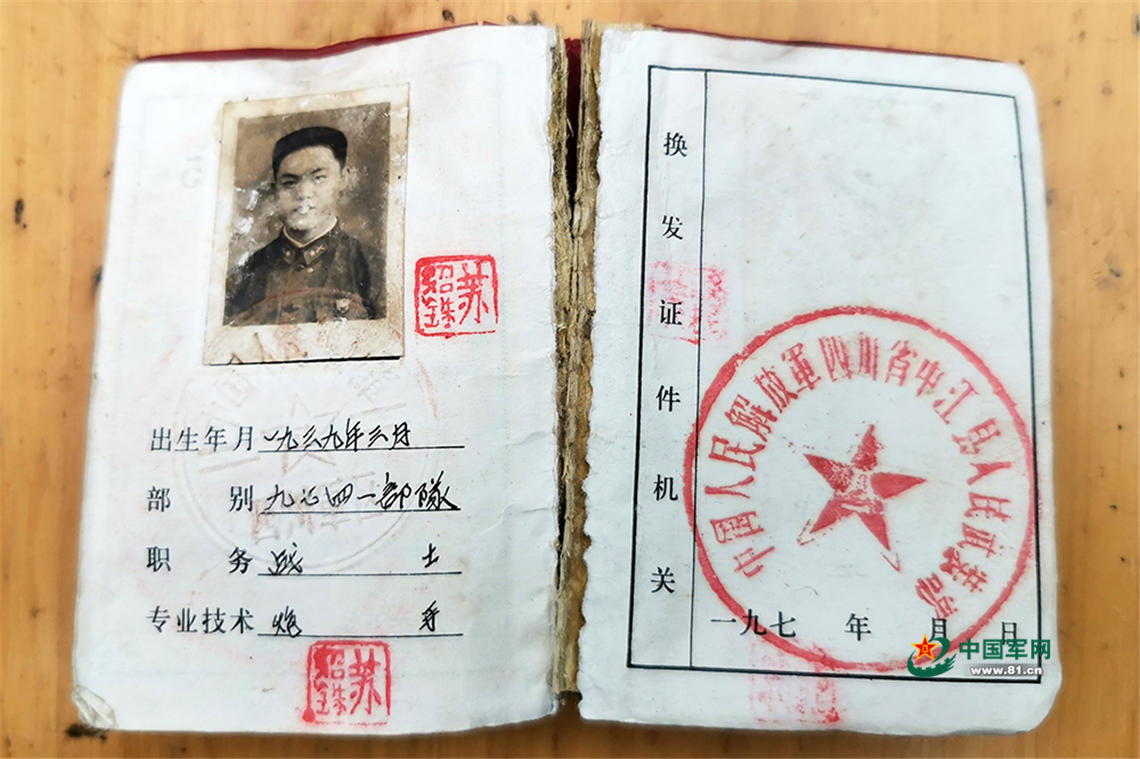 苏
出生年月 一九三九年三月
部别 四一部隊
职务 战士
专业技术 炮手
苏
换发证件机关
中国人民解放军四川省中江县人民武装部
一九七 年 月 日
中国军网
www.81.cn